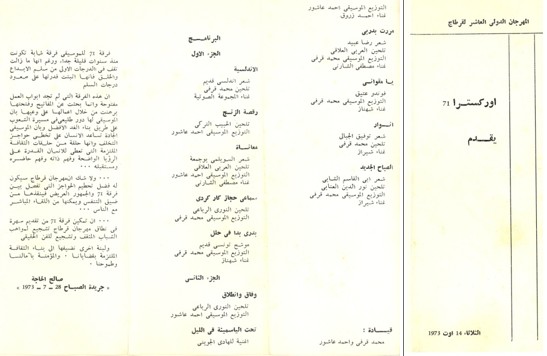 المهرجان الدولي العاشر لقرطاج
اوركسترا 71
يقدم
الثلاثاء 14 اوت 1973
فرقة 71 للموسيقى فرقة شابة تكونت
منذ سنوات قليلة جدا، ورغم انها ما زالت
تقف في الدرجات الاولى من سلم الابداع
والخلق فانها اثبتت قدرتها على صعود
درجات السلم
ان هذه الفرقة التي لم تجد ابواب العمل
مفتوحة وانما بحثت عن المفاتيح وفتحتها
برهنت من خلال اعمالها على وعيها بان
الموسيقى لها دور طليعي في مسيرة الشعوب
على طريق بناء الغد الافضل وبان الموسيقى
الجادة تساعد الانسان على تخطي حواجز
التخلف وانها حلقة من حلقات الثقافة
الملتزمة التي تعطي للانسان القدرة على
الرؤيا الواضحة وفهم ذاته وفهم حاضره
ومستقبله ...
... ولا شك ان مهرجان قرطاج سيكون
له فضل تحطيم الحواجز التي تفصل بين
فرقة 71 والجمهور العريض فينقذها من
ضيق التنفس ويمكنها من اللقاء المباشر
مع الناس ...
... ان تمكين فرقة 71 من تقديم سهرة
في نطاق مهرجان قرطاج تشجيع لمواهب
الشباب المثقف وتشجيع للفن الحقيقي
ولبنة اخرى نضيفها الى بناء الثقافة
الملتزمة بقضايانا، والمؤمنة بآمالنا
وطموحنا.
صالح الحاجة
« جريدة الصباح 28 – 7 – 1973 »
البرنامج
الجزء الاول
الاندلسية
شعر اندلسي قديم
تلحين محمد قرفي
غناء المجموعة الصوتية
رقصة الزنج
تلحين الحبيب التركي
التوزيع الموسيقي احمد عاشور
معاناة
شعر السويلمي بوجمعة
تلحين العربي العلاقي
التوزيع الموسيقي احمد عاشور
غناء مصطفى الشارني
سماعي حجاز كار كردي
تلحين النوري الرباعي
التوزيع الموسيقي محمد قرفي
بدري بدا في حلل
موشح تونسي قديم
التوزيع الموسيقي محمد قرفي
غناء شهناز
الجزء الثاني
وفاق وانطلاق
تلحين النوري الرباعي
التوزيع الموسيقي احمد عاشور
تحت الياسمينة في الليل
اغنية للهادي الجويني
التوزيع الموسيقي احمد عاشور
غناء احمد زروق
مررت بدوبي
شعر رضا عبيد
تلحين العربي العلاقي
التوزيع الموسيقي محمد قرفي
غناء مصطفى الشارني
يا مقواني
فوندو عتيق
التوزيع الموسيقي محمد قرفي
غناء شهناز
انوار
شعر توفيق الجبال
تلحين محمد قرفي
غناء شيراز
الصباح الجديد
شعر ابي القاسم الشابي
تلحين نور الدين العنابي
التوزيع الموسيقي محمد قرفي
غناء شيراز
قيادة :
محمد قرفي واحمد عاشور